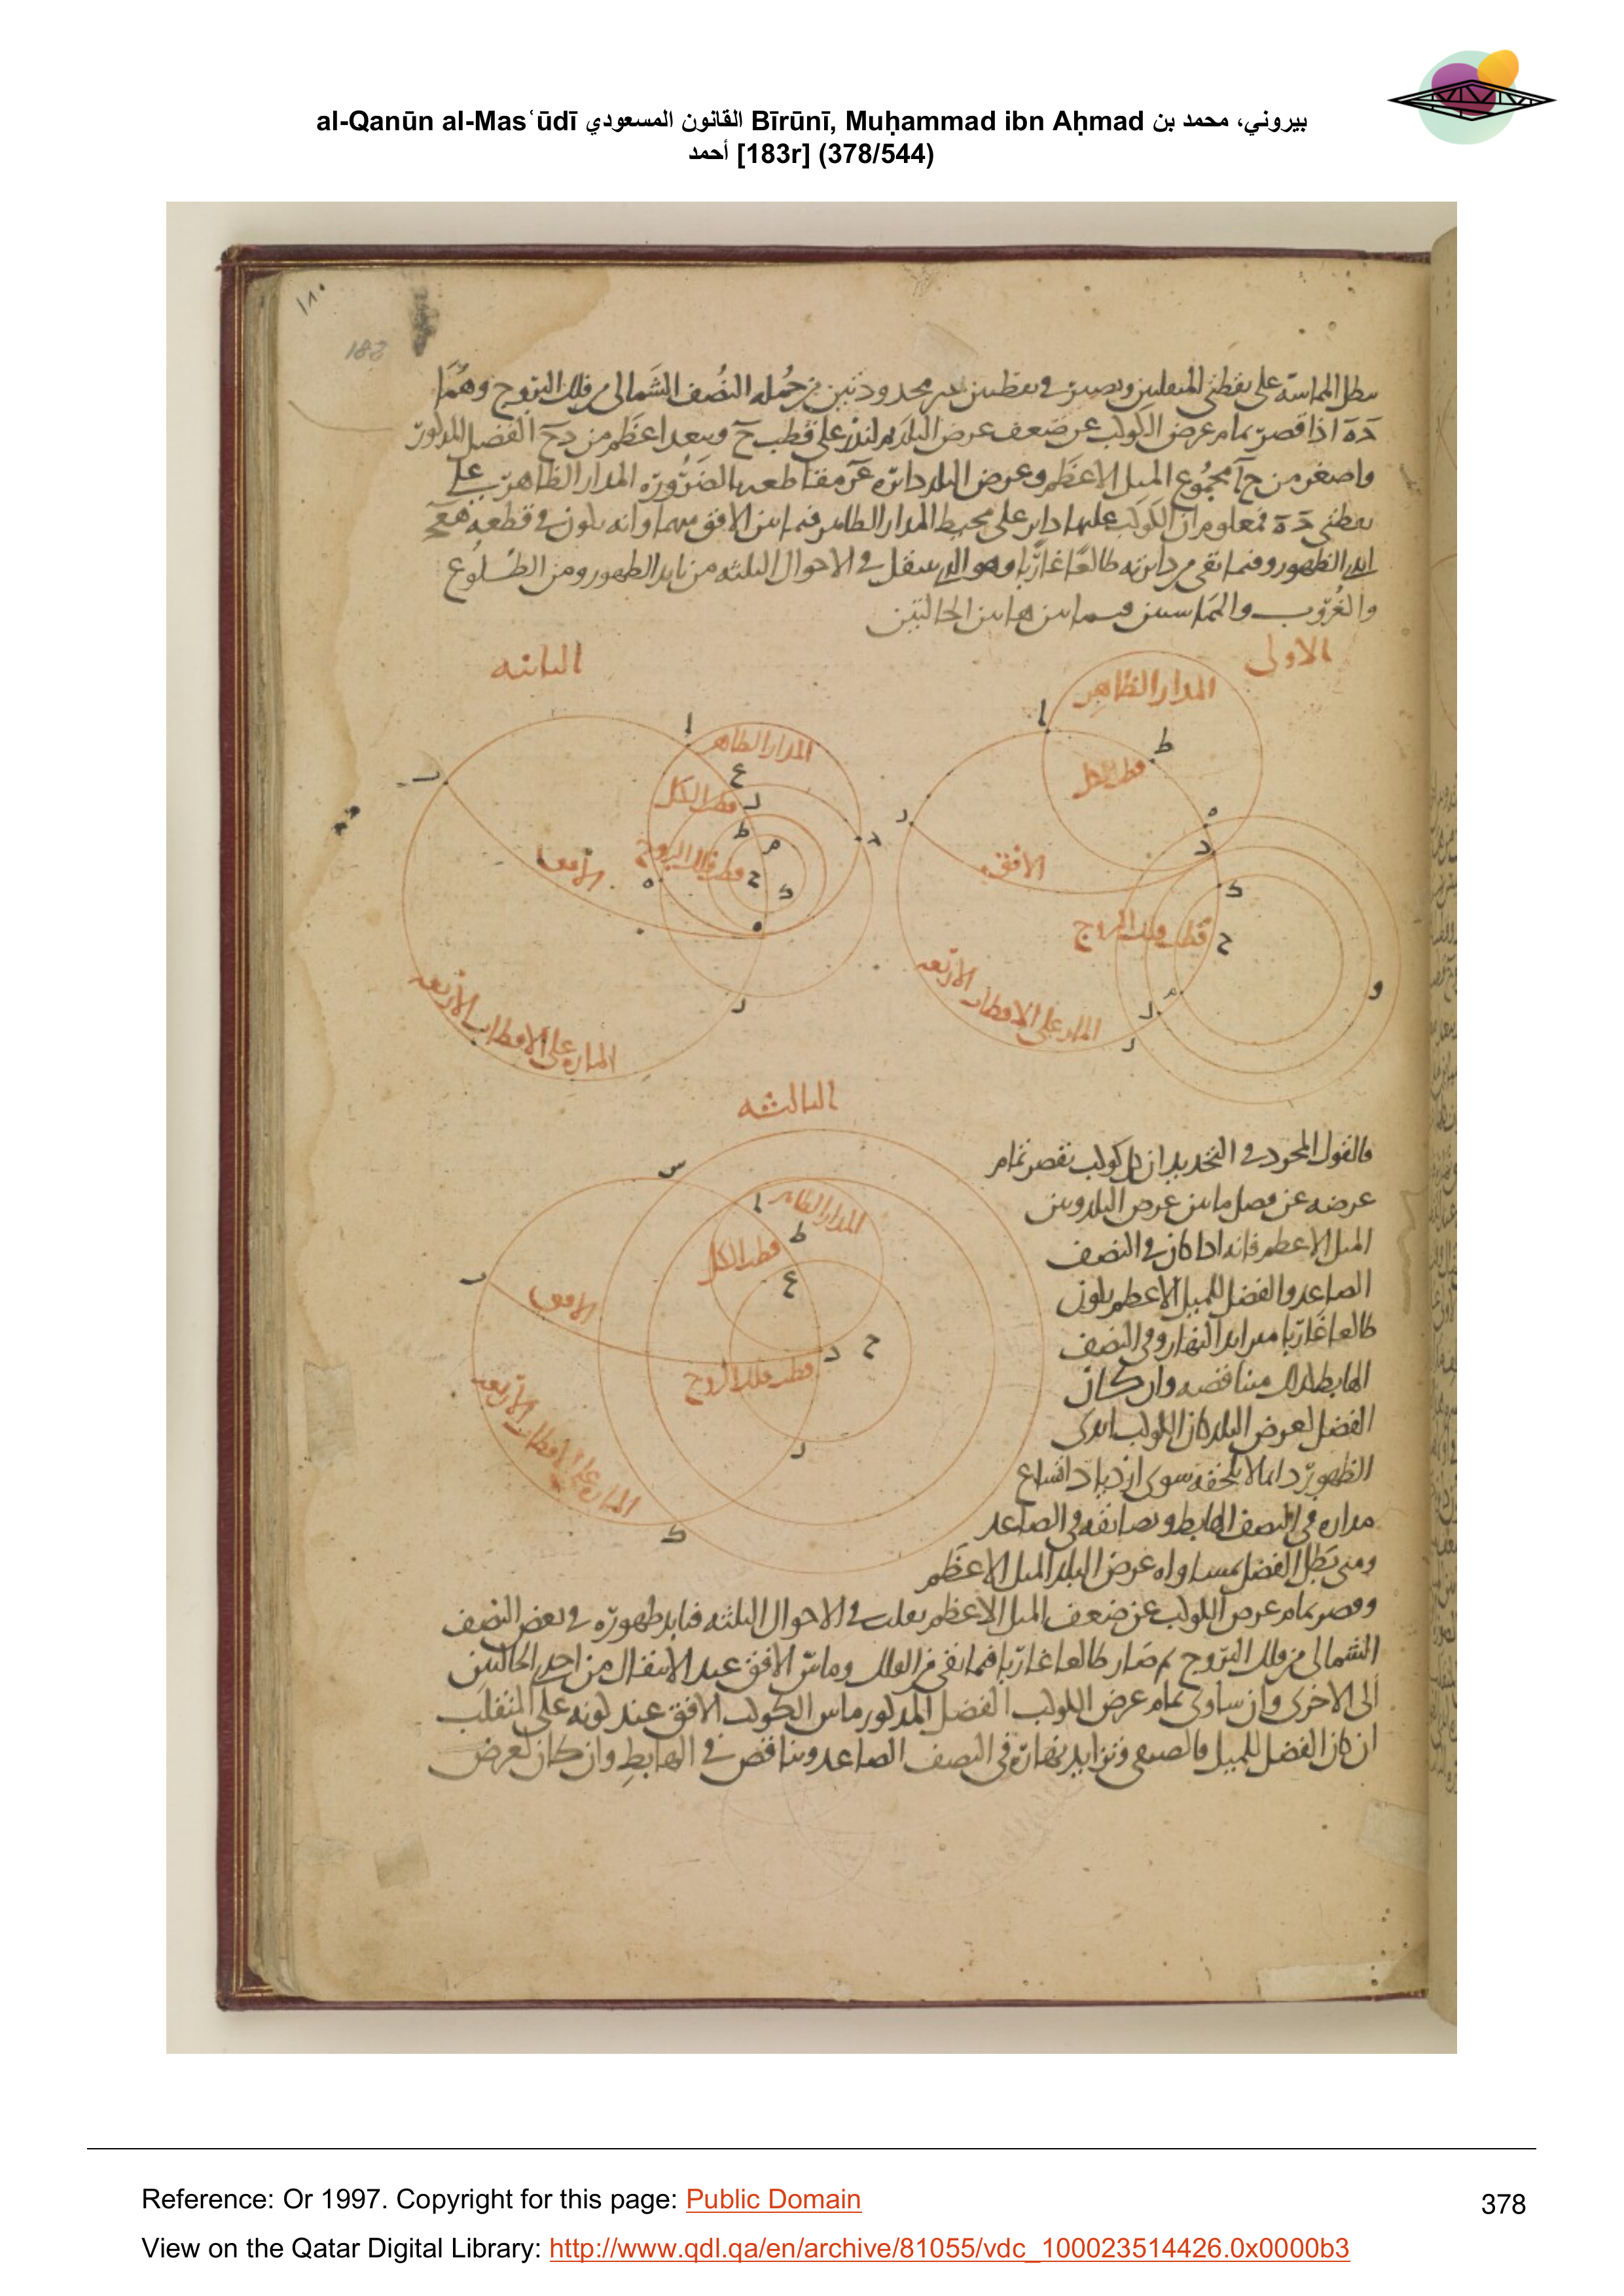 al-Qanūn al-Masʿūdī القانون المسعودي Bīrūnī, Muḥammad ibn Aḥmad بيروني، محمد بن
أحمد [183r] (378/544)
١٨٠
183
على نقطتى المنقلبين ونصير فى نقطتين غير محدودتين من جمله النصف الشمالى من فلك البروج وهما
دَهَ اذا قصر تمام عرض الكوكب عن ضعف عرض البلد على قطب حَ وببعد اعظم من دحَ الفضل المذكور
واصغر من حآ مجموع الميل الاعظم وعرض البلد دائرة مقاطعه بالضرورة المدار الظاهر على
نقطتى دَهَ فمعلوم ان الكوكب عليها داير على محيط المدار الظاهر فيما بين الافق منهما وانه يكون فى قطعه
ابدى الظهور وفيما بقى من دائرته طالعا غاربا وهو الذى ينتقل فى الاحوال الثلثه من تابد الظهور ومن الطلوع
والغروب والتماسين فيما بين هاتين الحالتين
الاولى
المدار الظاهر
ا
ط
قطب الكل
ه
د
الافق
ك
قطب فلك البروج
ح
و
الماره على الاقطاب الاربعه
الثانيه
ا
المدار الظاهر
ع
قطب الكل
ط
م
د
قطب فلك البروج
ح
ك
ه
الافق
الماره على الاقطاب الاربعه
الثالثه
س
ا
المدار الظاهر
ط
قطب الكل
ع
الافق
د
ح
قطب فلك البروج
الماره على الاقطاب الاربعه
ك
فالقول المجرد فى التحديد ان كل كوكب نقصر تمام
عرضه عن فضل ما بين عرض البلد وبين
الميل الاعظم فانه اذا كان فى النصف
الصاعد والفضل للميل الاعظم يكون
طالعا غاربا متزايد النهار وفى النصف
الهابط كذلك متناقصه وان كان
الفضل لعرض البلد كان الكوكب ابدى
الظهور دائما لا يلحقه سوى ازدياد اتساع
مداره فى النصف الهابط وتضايقه فى الصاعد
ومتى بطل الفضل بمساواه عرض البلد الميل الاعظم
وقصر تمام عرض الكوكب عن ضعف الميل الاعظم تقلب فى الاحوال الثلثه فتابد ظهوره فى بعض النصف
الشمالى من فلك البروج ثم صار طالعا غاربا فيما بقى من الفلك وماس الافق عند الانتقال من احدى الحالتين
الى الاخرى وان ساوى تمام عرض الكوكب الفضل المذكور ماس الكوكب الافق عند كونه على المنقلب
ان كان الفضل للميل فالصيفى وتزايد نهاره فى النصف الصاعد وتناقص فى الهابط وان كان لعرض
Reference: Or 1997. Copyright for this page: Public Domain
378
View on the Qatar Digital Library: http://www.qdl.qa/en/archive/81055/vdc_100023514426.0x0000b3